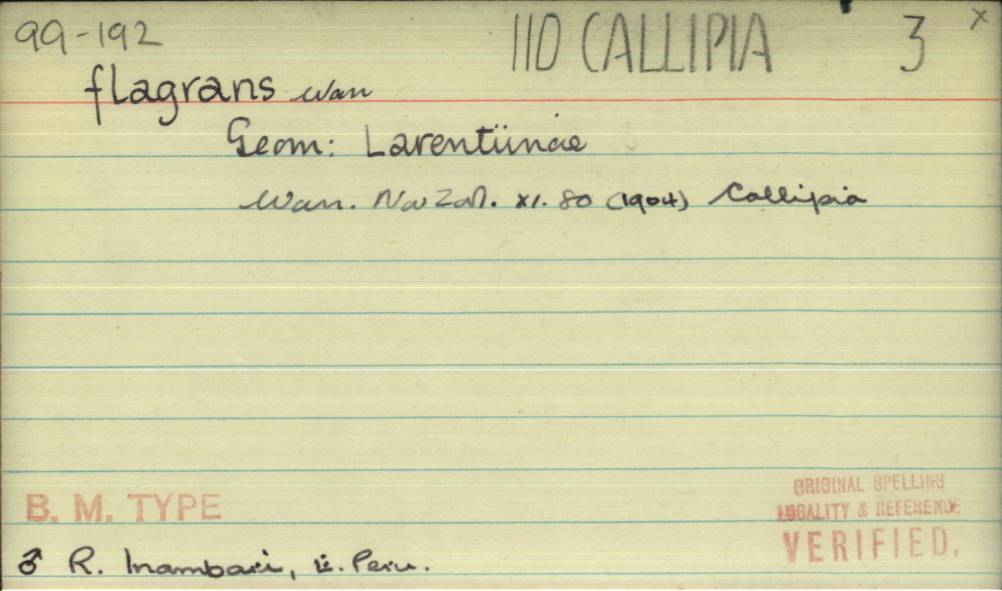 99-192 110 CALLIPIA 3 x
flagrans Warr
Geom: Larentiinae
Warr. Nov Zool. XI. 80 (1904) Callipia
B. M. TYPE
ORIGINAL SPELLING
LOCALITY & REFERENCE
VERIFIED.
♂ R. Inambari, Peru.